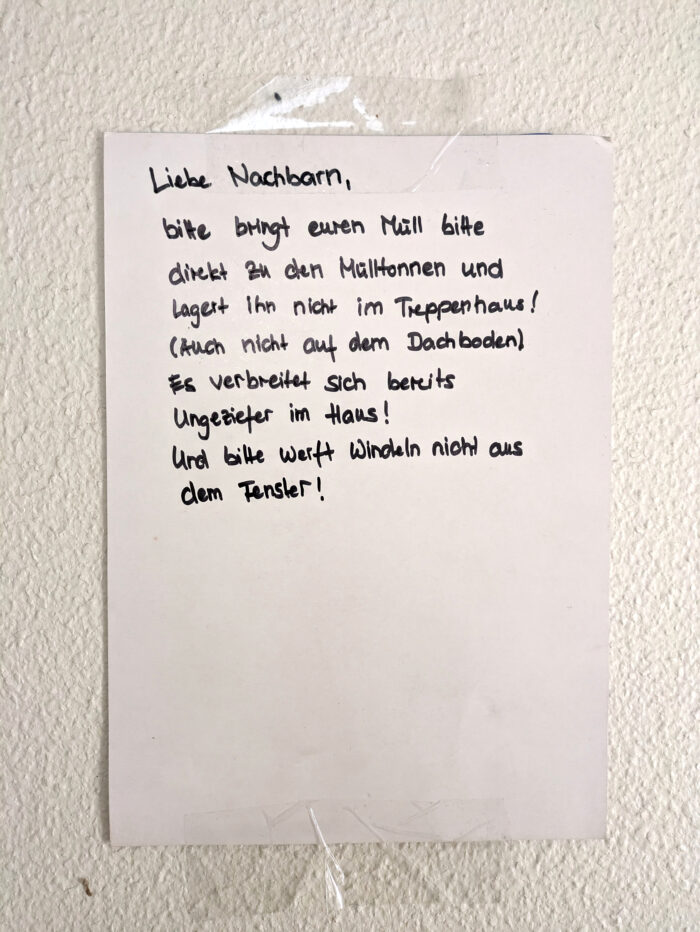 Liebe Nachbarn,
bitte bringt euren Müll bitte
direkt zu den Mülltonnen und
Lagert ihn nicht im Treppenhaus!
(Auch nicht auf dem Dachboden)
Es verbreitet sich bereits
Ungeziefer im Haus!
Und bitte werft Windeln nicht aus
dem Fenster!